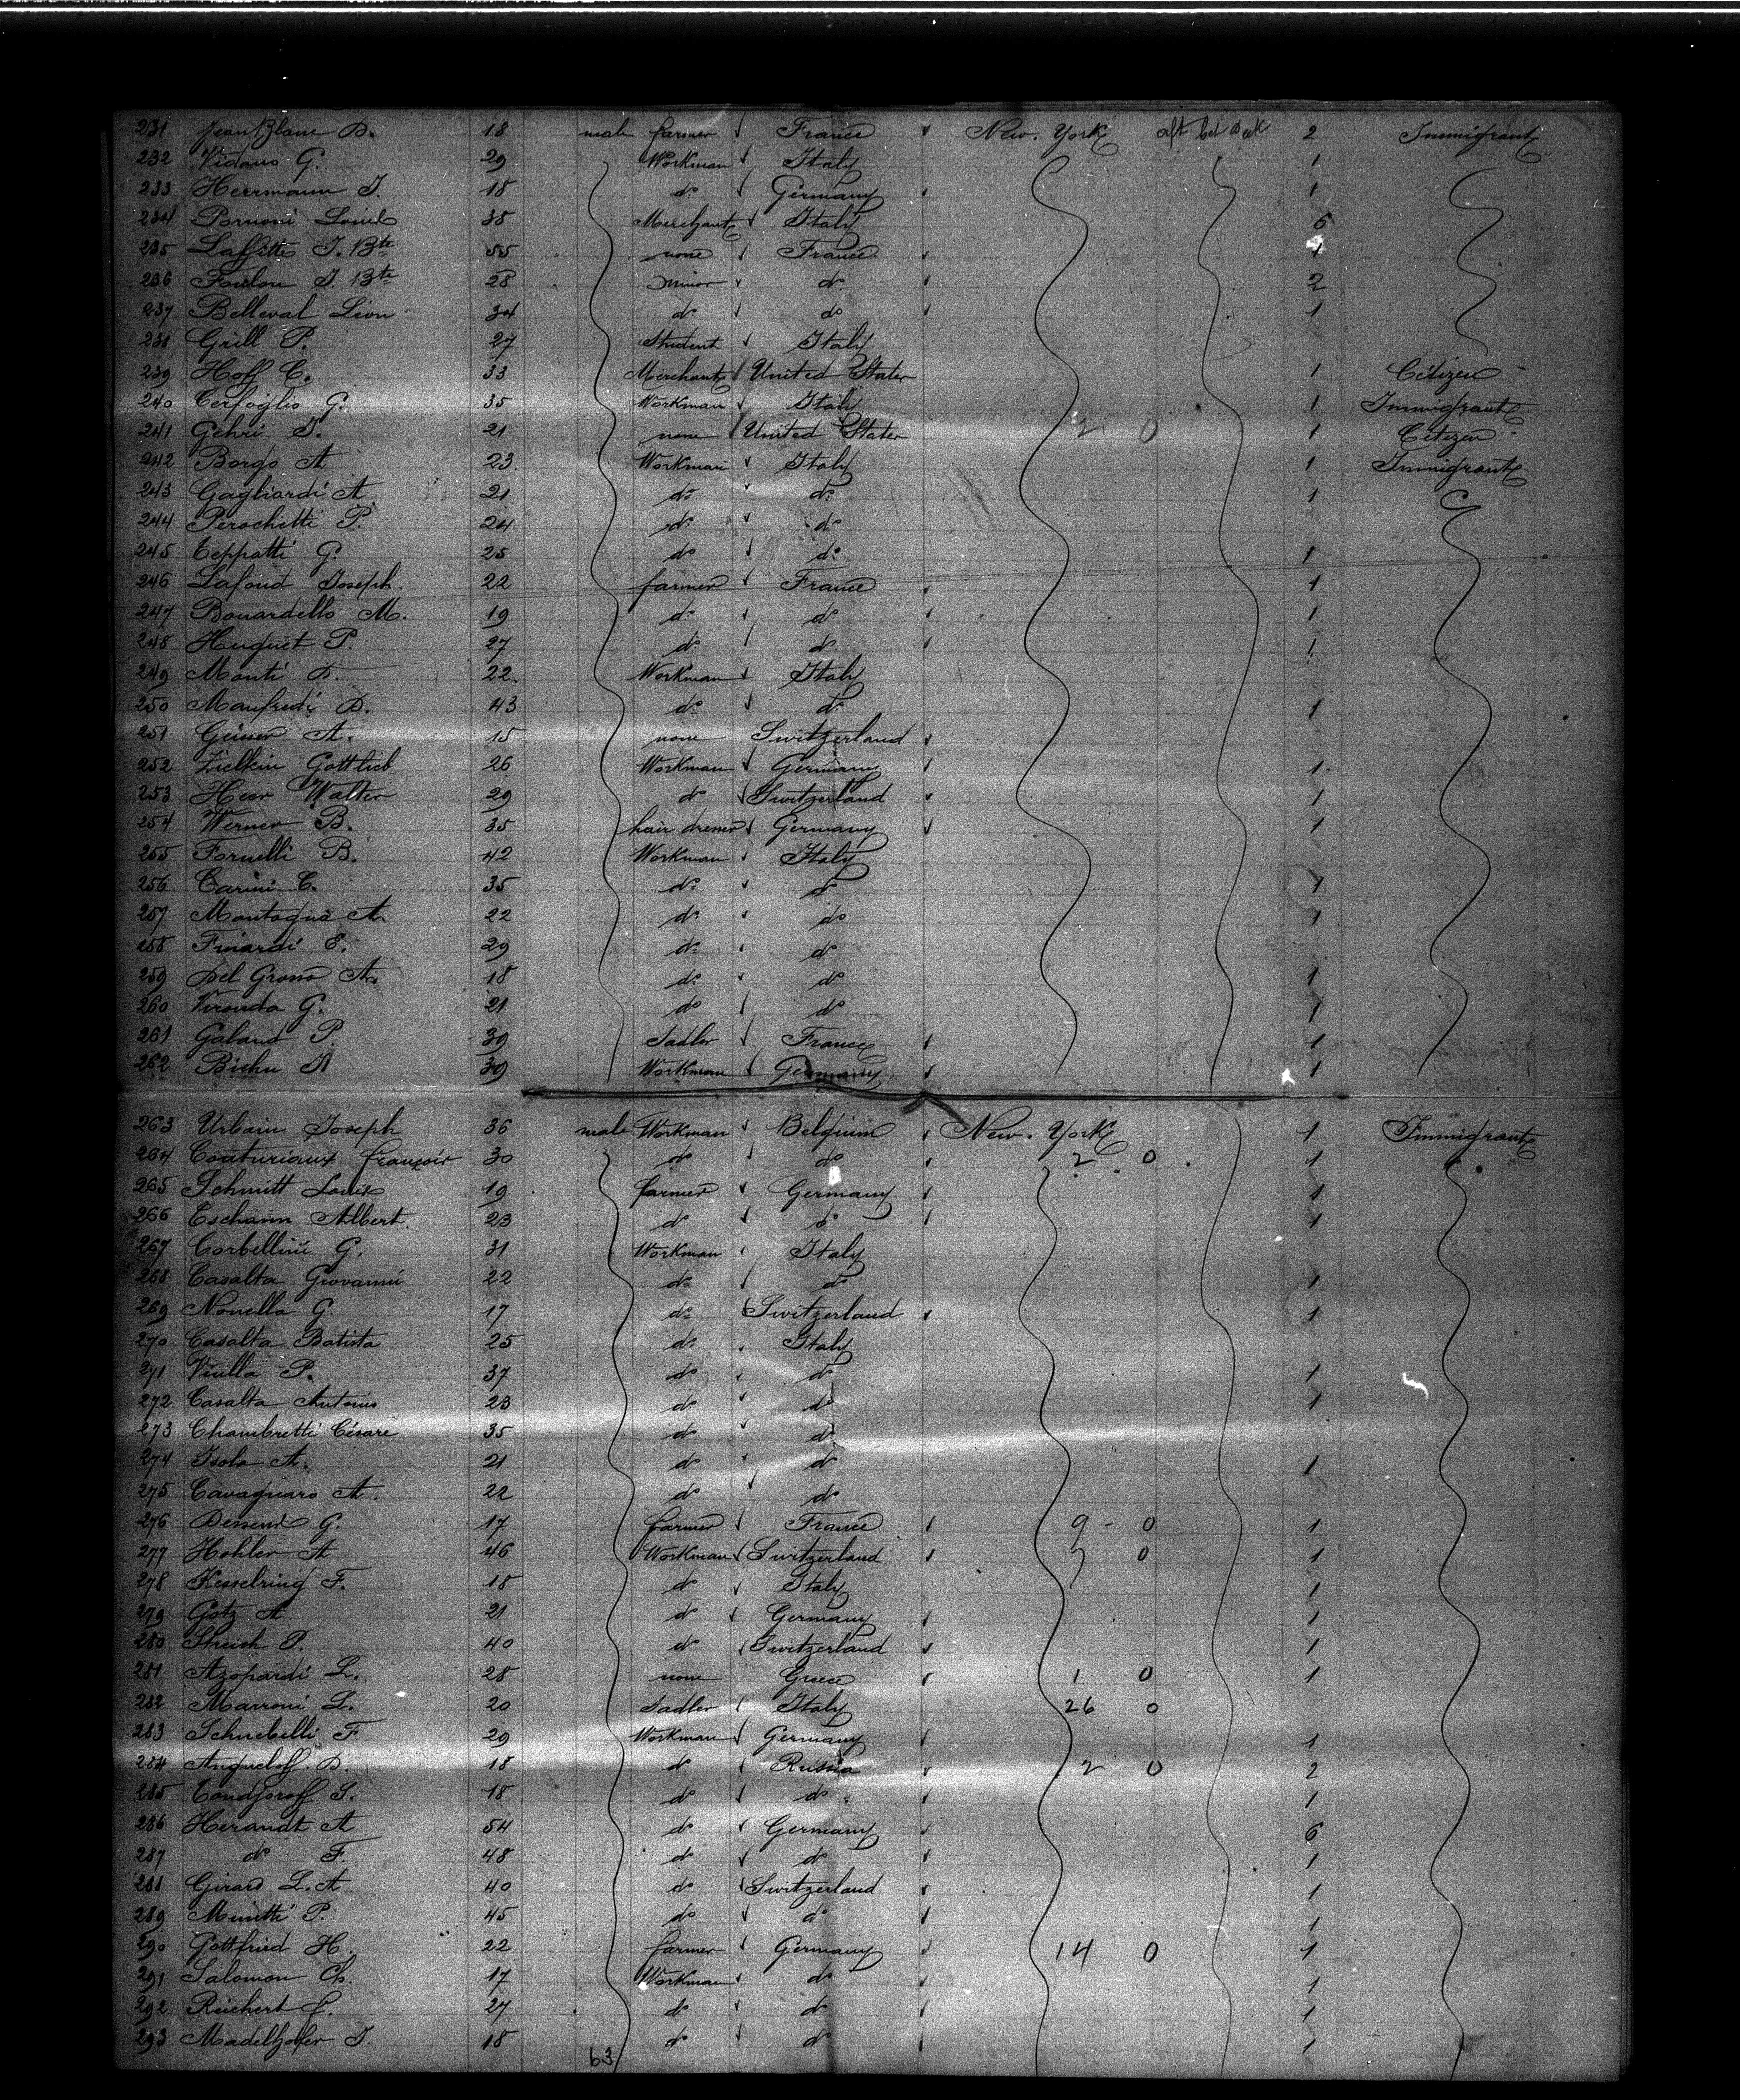 231 Jean Blanc D. 18 male farmer France New. York aft. bet. deck 2 Immigrant
232 Vidano G. 29 Workman Italy 1
233 Herrmann J. 18 do Germany 1
234 Pornoni Louis 38 Merchant Italy 5
235 Laffitte J. Bte 55 none France 1
236 J. Bte 28 Minor do 2
237 Belleval Léon 34 do do 1
238 Grill P. 27 Student Italy
239 Hoff C. 33 Merchant United States 1 Citizen
240 Cerfoglio G. 35 Workman Italy 1 Immigrant
241 Gehri J. 21 none United States 2 0 1 Citizen
242 Borgo A 23 Workman Italy 1 Immigrant
243 Gagliardi A 21 do do 1
244 Perochetti P. 24 do do
245 Ceppatti G. 25 do do 1
246 Lafond Joseph 22 farmer France 1
247 Bonardello M. 19 do do 1
248 Huguet P. 27 do do 1
249 Monti D. 22 Workman Italy
250 Manfredi D. 43 do do 1
251 A. 15 none Switzerland
252 Zielkin Gottlieb 26 Workman Germany 1
253 Heer Walter 29 do Switzerland 1
254 Werner B. 35 hair dresser Germany 1
255 Fornelli B. 42 Workman Italy
256 Carini C. 35 do do 1
257 Montagna A. 22 do do 1
258 E. 29 do do
259 Del Grosso A. 18 do do 1
260 G. 21 do do 1
261 Galand P. 39 Sadler France 1
262 Biehn A 39 Workman Germany 1
263 Urbain Joseph 36 male Workman Belgium New. York 1 Immigrant
264 Couturiaux françois 30 do do 2 0 1
265 Schmitt Louis 19 farmer Germany 1
266 Eschann Albert 23 do do 1
267 Corbellini G. 31 Workman Italy
268 Casalta Giovanni 22 do do 1
269 Novella G. 17 do Switzerland 1
270 Casalta Batista 25 do Italy
271 Viulla P. 37 do do 1
272 Casalta Antonio 23 do do 1
273 Chambretti Césare 35 do do
274 Isola A. 21 do do 1
275 Cavagnaro A. 22 do do
276 G. 17 farmer France 9 - 0 1
277 Hohler A 46 Workman Switzerland 7 0 1
278 Kesselring F. 18 do Italy 1
279 Götz A. 21 do Germany 1
280 P. 40 do Switzerland 1
281 Azopardi L. 28 none Greece 1 0 1
282 Marroni L. 20 Sadler Italy 26 0
283 Schnebelli F 29 Workman Germany 1
284 Angueloff D. 18 do Russia 2 0 2
285 J. 18 do do 1
286 Herandt A 54 do Germany 6
287 do F. 48 do do 1
288 Girard L. A 40 do Switzerland 1
289 Minetti P. 45 do do 1
290 Gottfried H. 22 farmer Germany 14 0 1
291 Salomon Ch. 17 Workman do 1
292 Reichert C. 27 do do 1
293 Madelhofer J. 18 do do 1
63